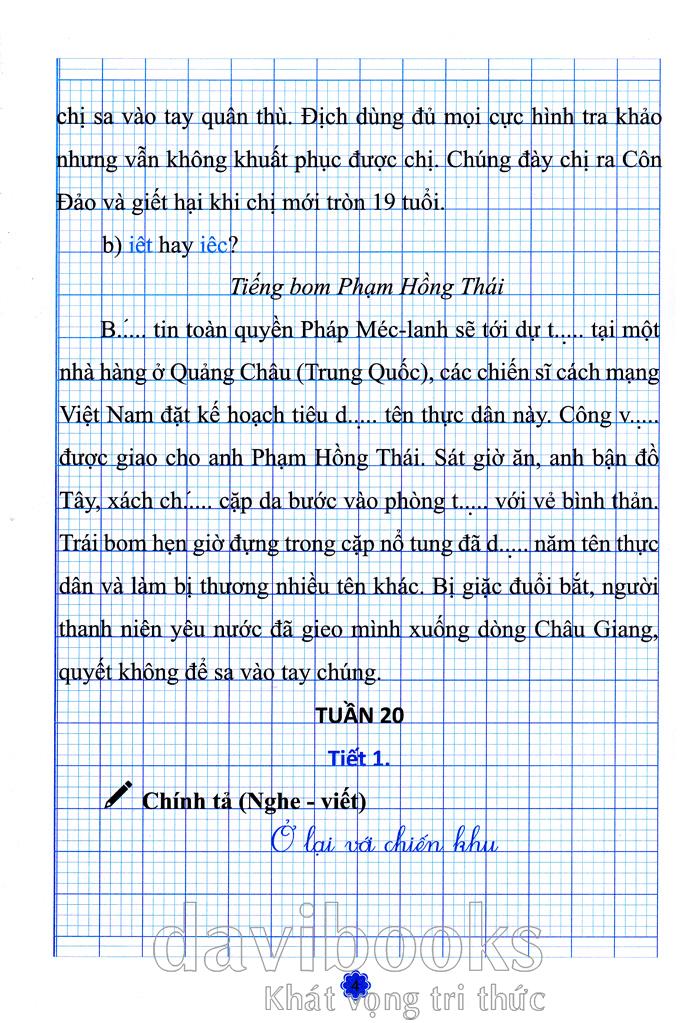 chị sa vào tay quân thù. Địch dùng đủ mọi cực hình tra khảo
nhưng vẫn không khuất phục được chị. Chúng đày chị ra Côn
Đảo và giết hại khi chị mới tròn 19 tuổi.
b) iêt hay iêc?
Tiếng bom Phạm Hồng Thái
B.́.... tin toàn quyền Pháp Méc-lanh sẽ tới dự t.̣.... tại một
nhà hàng ở Quảng Châu (Trung Quốc), các chiến sĩ cách mạng
Việt Nam đặt kế hoạch tiêu d.̣.... tên thực dân này. Công v.̣....
được giao cho anh Phạm Hồng Thái. Sát giờ ăn, anh bận đồ
Tây, xách ch.́.... cặp da bước vào phòng t.̣.... với vẻ bình thản.
Trái bom hẹn giờ đựng trong cặp nổ tung đã d.̣.... năm tên thực
dân và làm bị thương nhiều tên khác. Bị giặc đuổi bắt, người
thanh niên yêu nước đã gieo mình xuống dòng Châu Giang,
quyết không để sa vào tay chúng.
TUẦN 20
Tiết 1.
Chính tả (Nghe - viết)
Ở lại với chiến khu
davibooks
4
Khát vọng tri thức